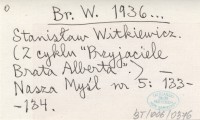 Br. W. 1936...
Stanisław Witkiewicz.
(Z cyklu "Przyjaciele
Brata Alberta".) —
Nasza Myśl nr 5: 133-
-134.